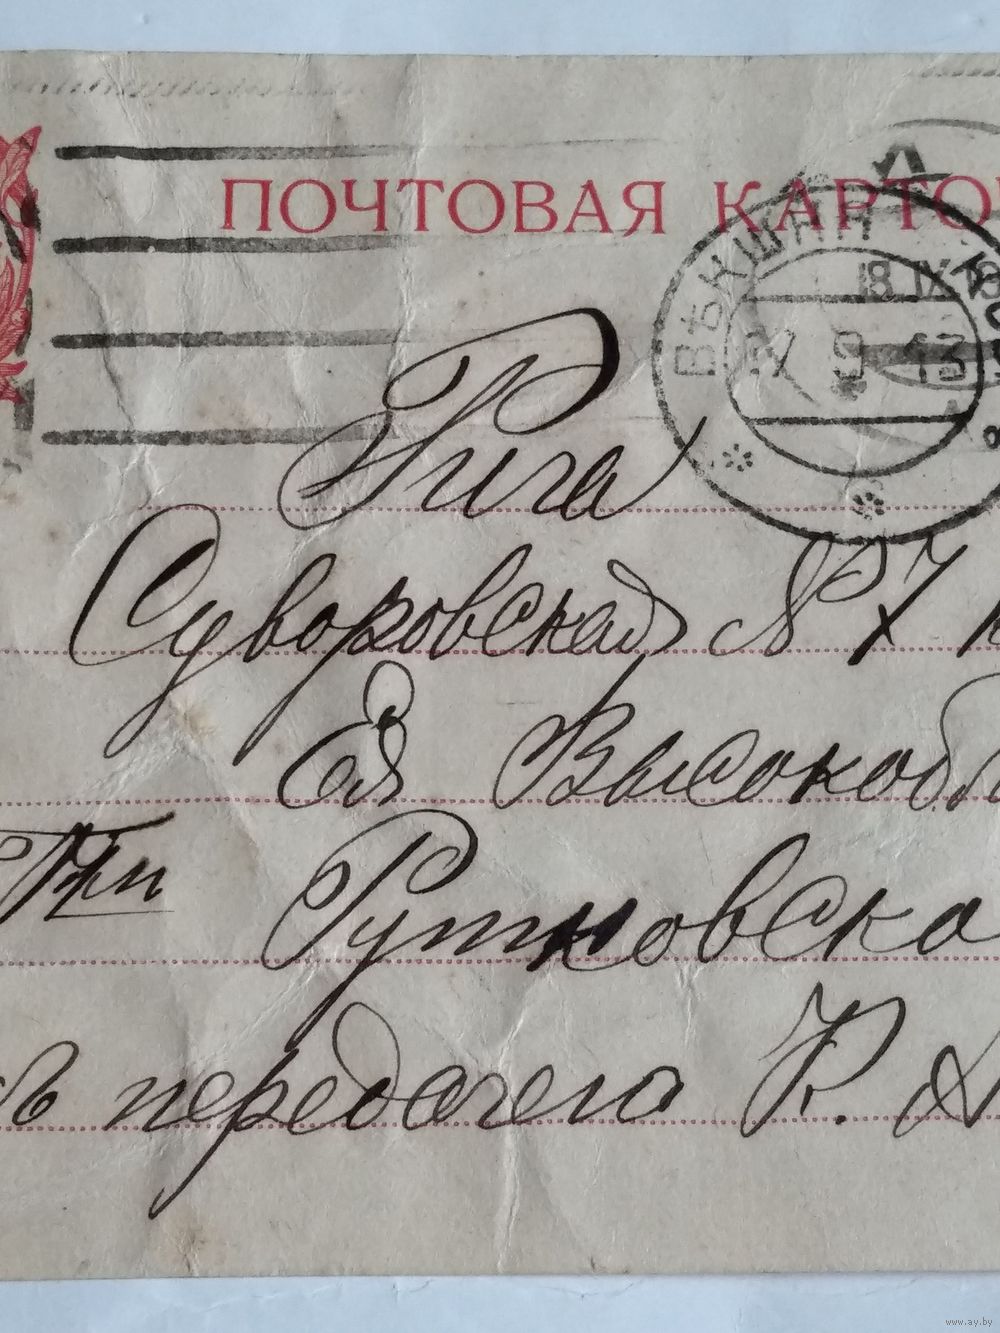 ПОЧТОВАЯ КАРТО
ВѢКШНИ
18 IX
9 13
Рига
Суворовская № 7
Ея Высокобл
Рутковско
съ передачею К. А
www.ay.by